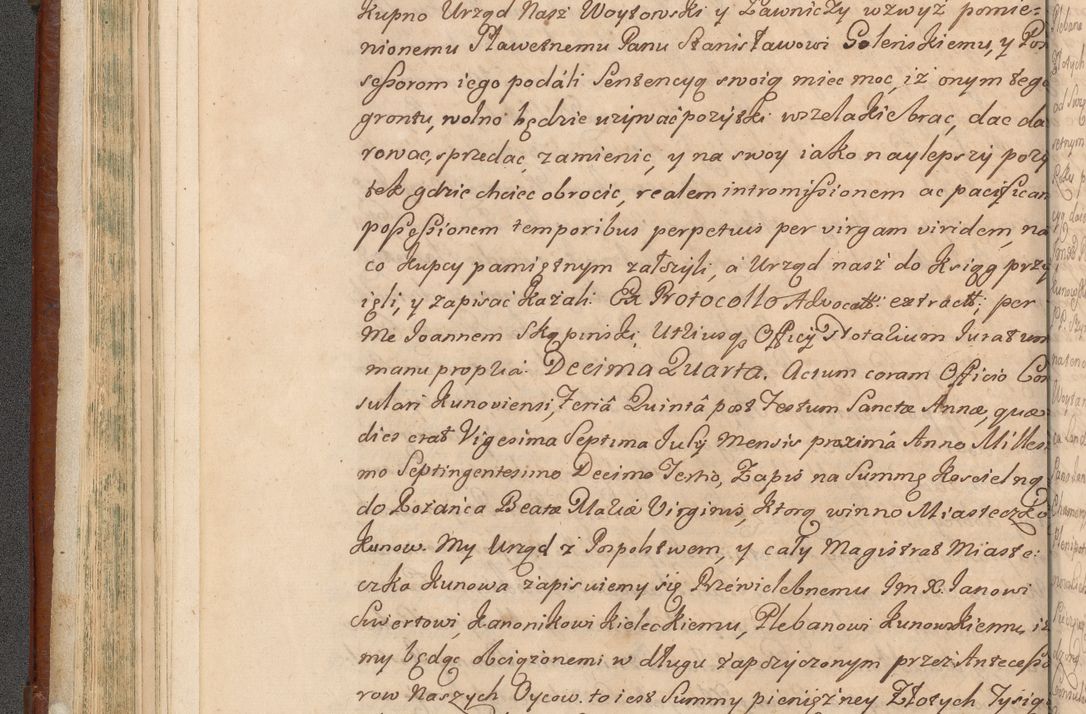 Kupno Urząd Nasz Woytowski y Ławniczy wzwyż pomie-
nionemu Sławetnemu Panu Stanisławowi Goleńskiemu, y Pos
sessorom iego podáli Sentencyą swoią miec moc, iż onym tego
grontu, wolno będzie używać pożytki wszelakie brac, dac da
rowac, sprzedac, zamienic, y na swoy iako naylepszy poży
tek gdzie chciec obrocic, realem intromissionem ac pacifican
possessionem temporibus perpetuis per virgam viridem, na
co kupcy pamiętnym założyli, a Urząd nasz do Ksiąg przy
ięli, y zapisać Kazali. Ex Protocollo Advocatt: extractt: per
Me Joannem Skąpinski, Utriusqs Officij Notalium Juratum
manu proplia. Decima Quarta. Actum coram Officio Con
sulari Kunoviensi, Feriâ Quintâ post Festum Sanctæ Annæ, quæ
dies erat Vigesima Septima July Mensis proximá Anno Milles
mo Septingentesimo Decimo Tertio, Zapis na Summę Koscielną
do Rożańca Beatæ Mariæ Virginis, Ktorą winno Miasteczko
Kunow. My Urząd z Pospolstwem, y cały Magistrat Miaste:
czka Kunowa zapisuiemy się Przewielebnemu Jm X. Janowi
Swertowi, Kanonikowi Kieleckiemu, Plebanowi Kunowskiemu, iż
my będąc obciążonemi w długu zapożyczonym przez Antecesso
row Naszych Oycow. to iest Summy pieniężney Złotych Tysiąc